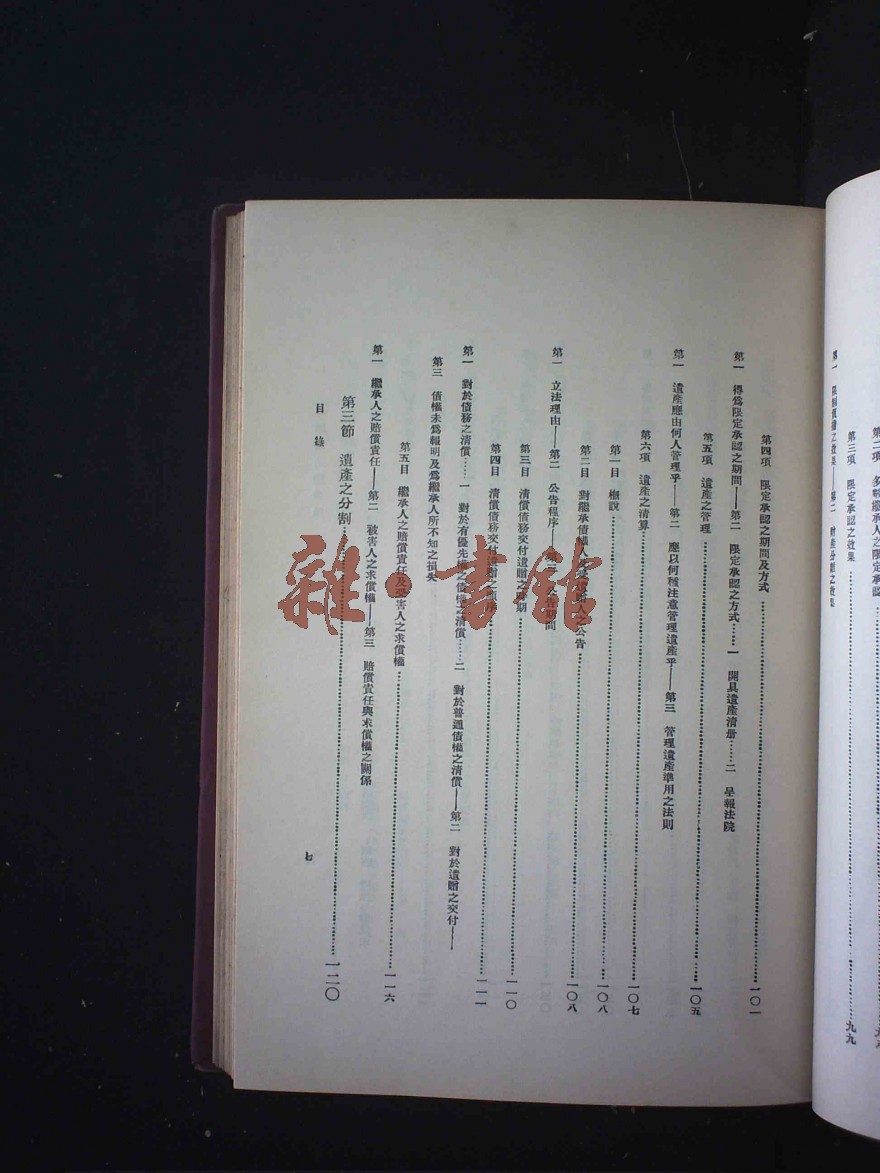 第三項　限定承認之效果……九九
第四項　限定承認之期間及方式……一〇一
第一　得爲限定承認之期間——第二　限定承認之方式……一　開具遺產淸册……二　呈報法院
第五項　遺產之管理……一〇五
第一　遺產應由何人管理乎——第二　應以何種注意管理遺產乎——第三　管理遺產準用之法則
第六項　遺產之淸算……一〇七
第一目　槪說……一〇八
第二目　對繼承債權人及受遺贈人之公告……一〇八
第一　立法理由——第二　公告程序——第三　公告期間
第三目　淸償債務交付遺贈之時期……一一〇
第四目　淸償債務交付遺贈之順序……一一一
第一　對於債務之淸償……一　對於有優先權之債權之淸償……二　對於普通債權之淸償——第二　對於遺贈之交付——
第三　債權未爲報明及爲繼承人所不知之損失
第五目　繼承人之賠償責任及受害人之求償權……一一六
第一　繼承人之賠償責任——第二　被害人之求償權——第三　賠償責任與求償權之關係
第三節　遺產之分割……一二〇
目　錄
七
雜·書舘